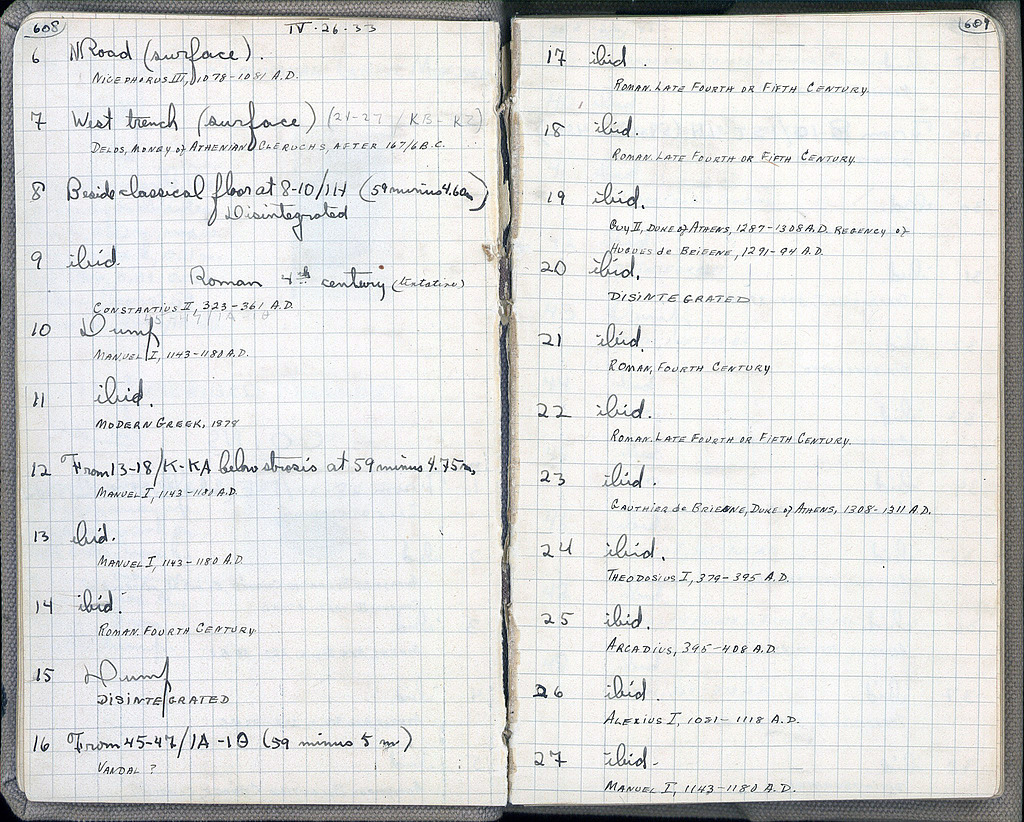 608
IV·26·33
6 NRoad (surface).
NICEPHORUS III, 1078-1081 A.D.
7 West trench (surface) (21-27 / KB-KZ)
DELOS, MONEY of ATHENIAN CLERUCHS, AFTER 167/6 B.C.
8 Beside classical floor at 8-10/IH (59 minus 4.60m)
Disintegrated
9 ibid.
Roman 4th century (tentative)
CONSTANTIUS II, 323-361 A.D.
10 Dump
MANUEL I, 1143-1180 A.D.
11 ibid.
MODERN GREEK, 1878
12 From 13-18/K-KA below strosis at 59 minus 4.75m
MANUEL I, 1143-1180 A.D.
13 ibid.
MANUEL I, 1143-1180 A.D.
14 ibid.
ROMAN. FOURTH CENTURY
15 Dump
DISINTEGRATED
16 From 45-47/IA-IΘ (59 minus 5 m)
VANDAL ?
609
17 ibid.
ROMAN. LATE FOURTH OR FIFTH CENTURY.
18 ibid.
ROMAN. LATE FOURTH OR FIFTH CENTURY.
19 ibid.
GUY II, DUKE of ATHENS, 1287-1308 A.D. REGENCY of
HUGUES de BRIENNE, 1291-94 A.D.
20 ibid.
DISINTEGRATED
21 ibid.
ROMAN, FOURTH CENTURY
22 ibid.
ROMAN. LATE FOURTH OR FIFTH CENTURY.
23 ibid.
GAUTHIER de BRIENNE, DUKE of ATHENS, 1308-1311 A.D.
24 ibid.
THEODOSIUS I, 379-395 A.D.
25 ibid.
ARCADIUS, 395-408 A.D.
26 ibid.
ALEXIUS I, 1081-1118 A.D.
27 ibid.
MANUEL I, 1143-1180 A.D.